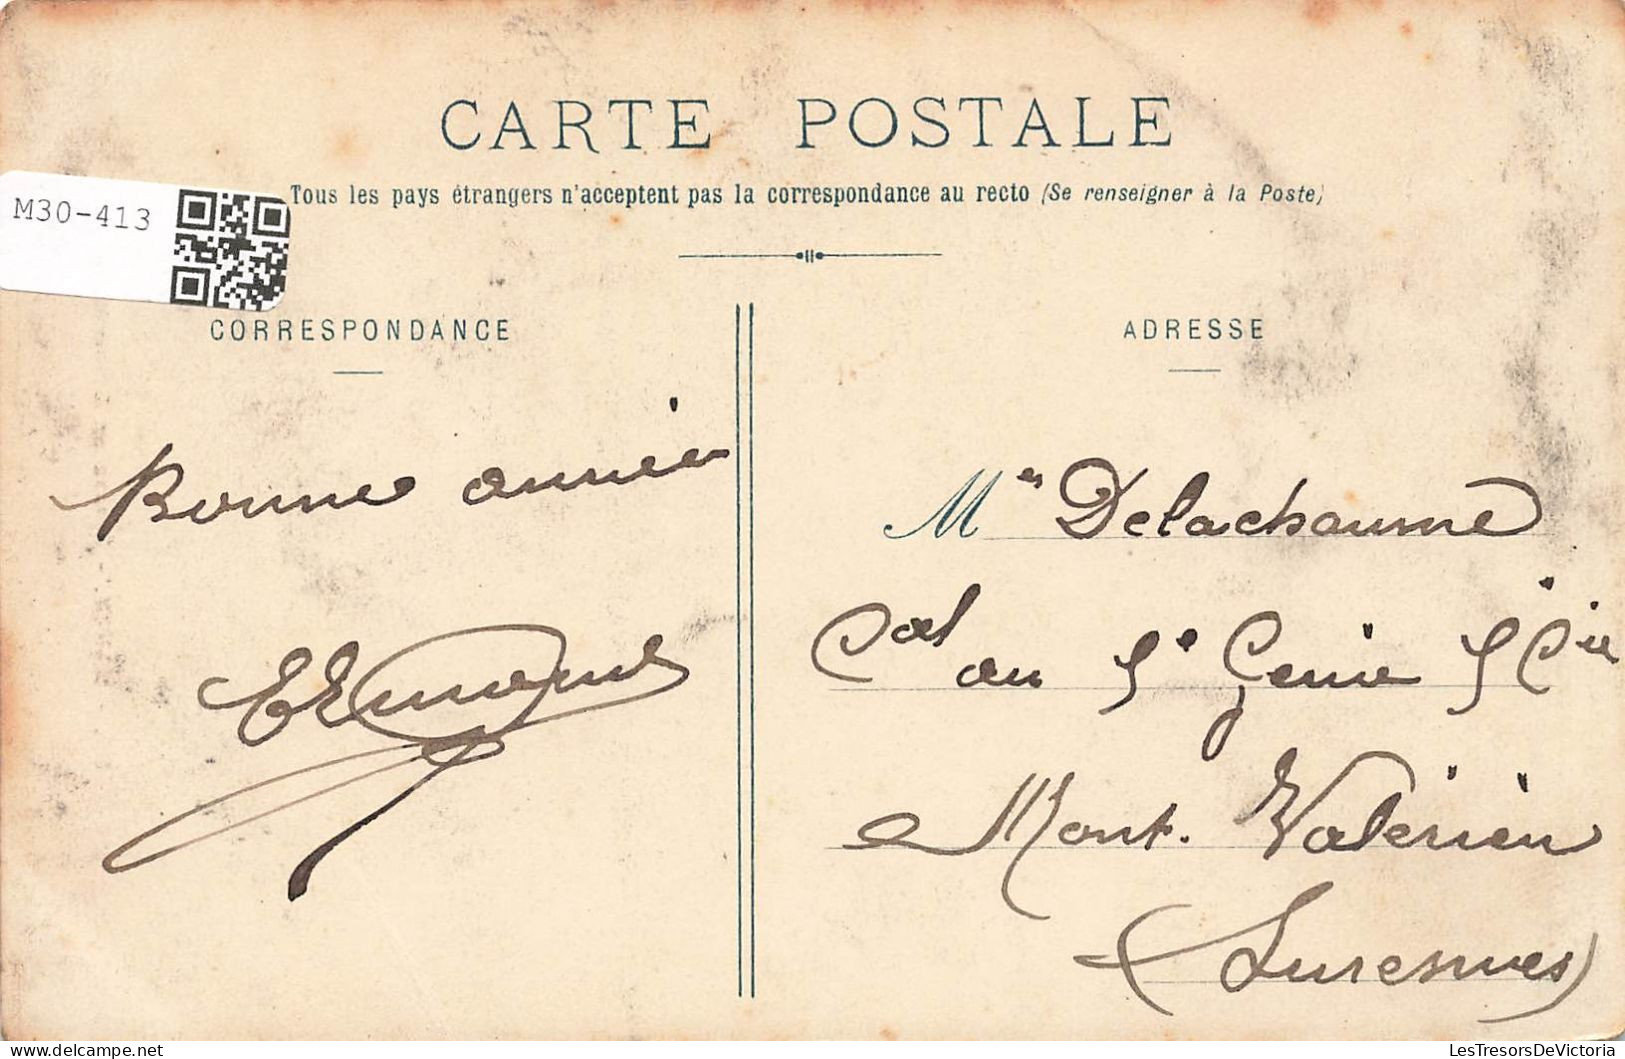 CARTE POSTALE
Tous les pays étrangers n'acceptent pas la correspondance au recto (Se renseigner à la Poste)
M30-413
CORRESPONDANCE
Bonne année
ADRESSE
M Delachaume
Cal au 5e Génie 5 Cie
Mont. Valérien
(Suresnes)
LesTresorsDeVictoria